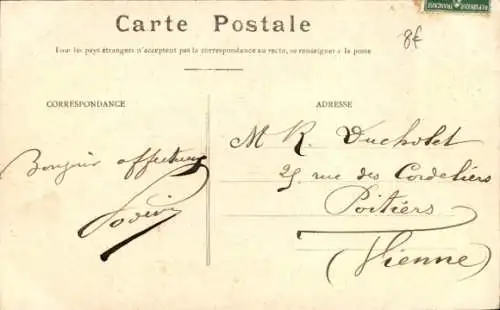 Carte Postale
8€
REPUBLIQUE FRANÇAISE
Tous les pays étrangers n'acceptent pas la correspondance au recto, se renseigner à la poste
CORRESPONDANCE
Bonjour affectueux
ADRESSE
M R. Ducholet
25 rue des Cordeliers
Poitiers
(Vienne)